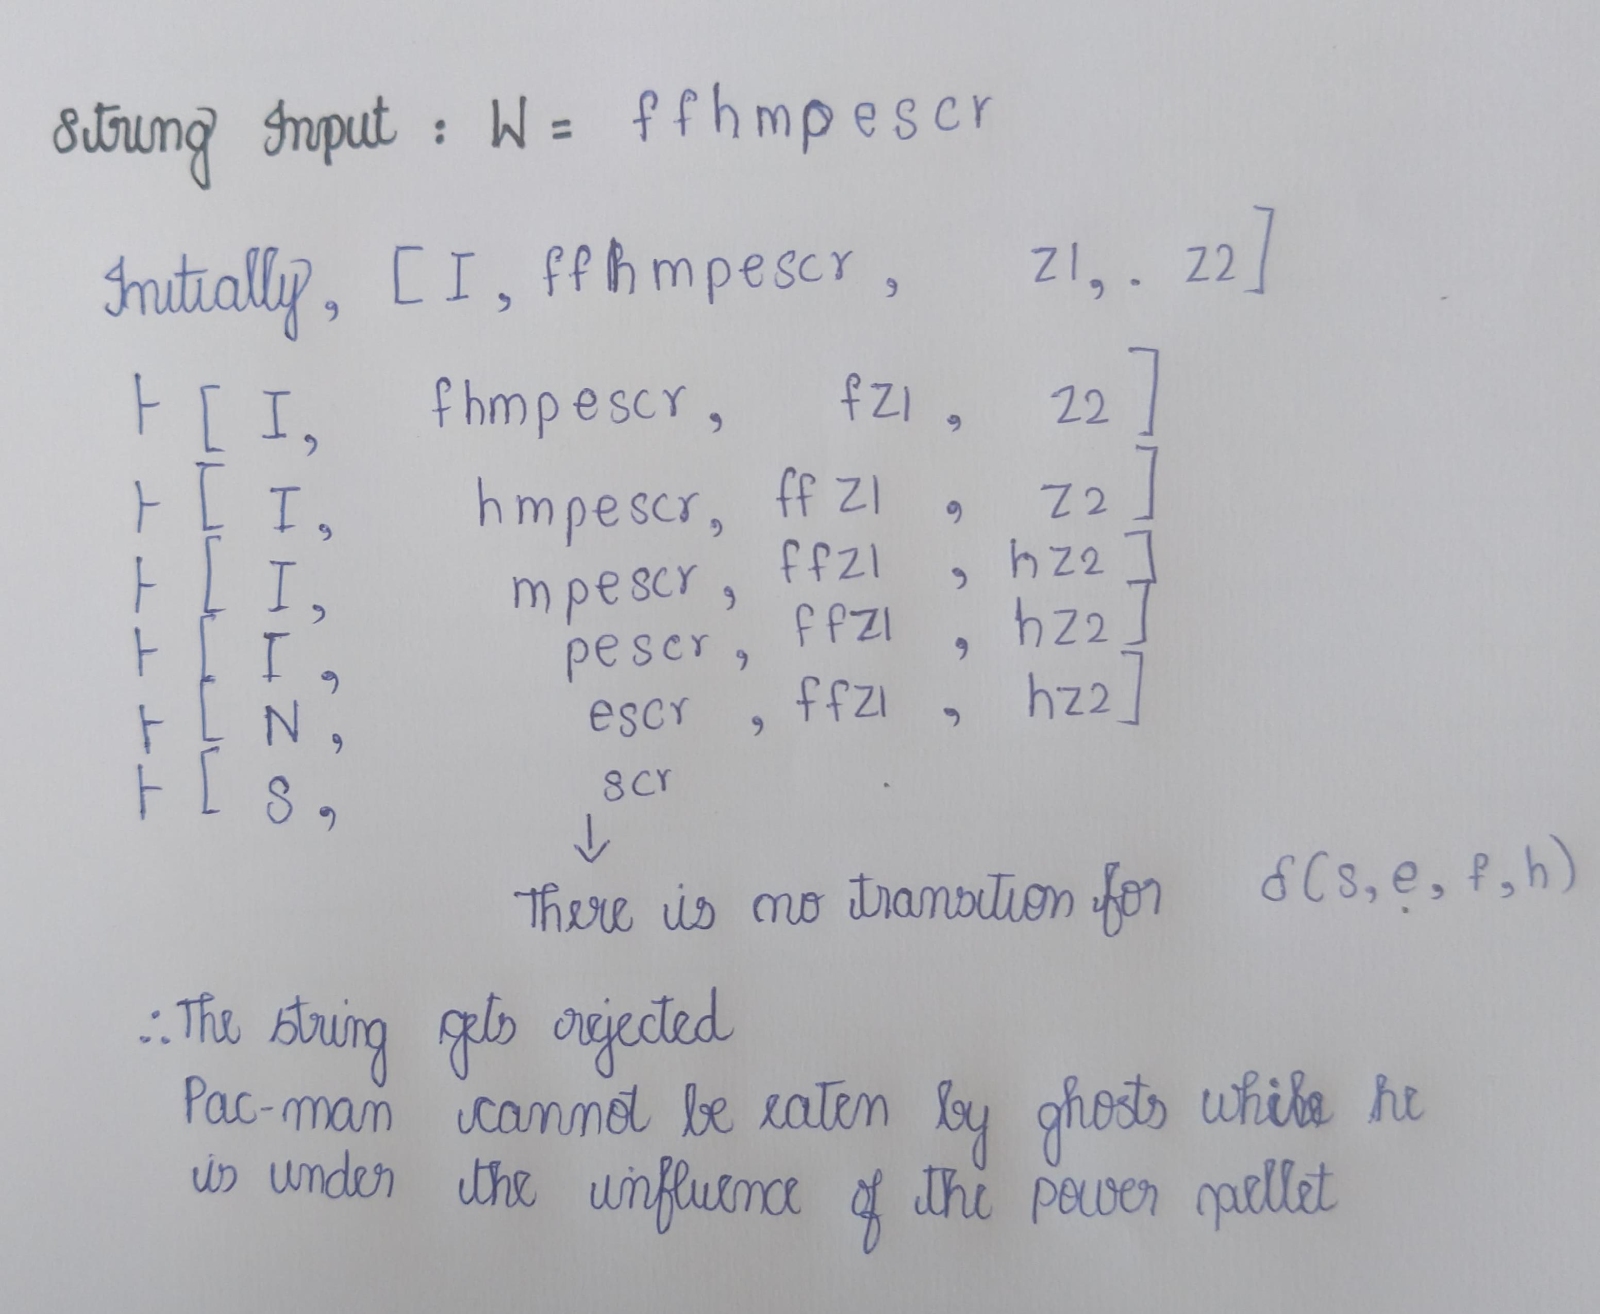 String Input : W = ffhmpescr
Initially, [I, ffhmpescr, z1,. z2]
⊢ [I, fhmpescr, fz1, z2]
⊢ [I, hmpescr, ffz1, z2]
⊢ [I, mpescr, ffz1, hz2]
⊢ [I, pescr, ffz1, hz2]
⊢ [N, escr, ffz1, hz2]
⊢ [S, scr
↓
There is no transition for δ(s, e, f, h)
∴ The string gets rejected
Pac-man cannot be eaten by ghosts while he
is under the influence of the power pellet